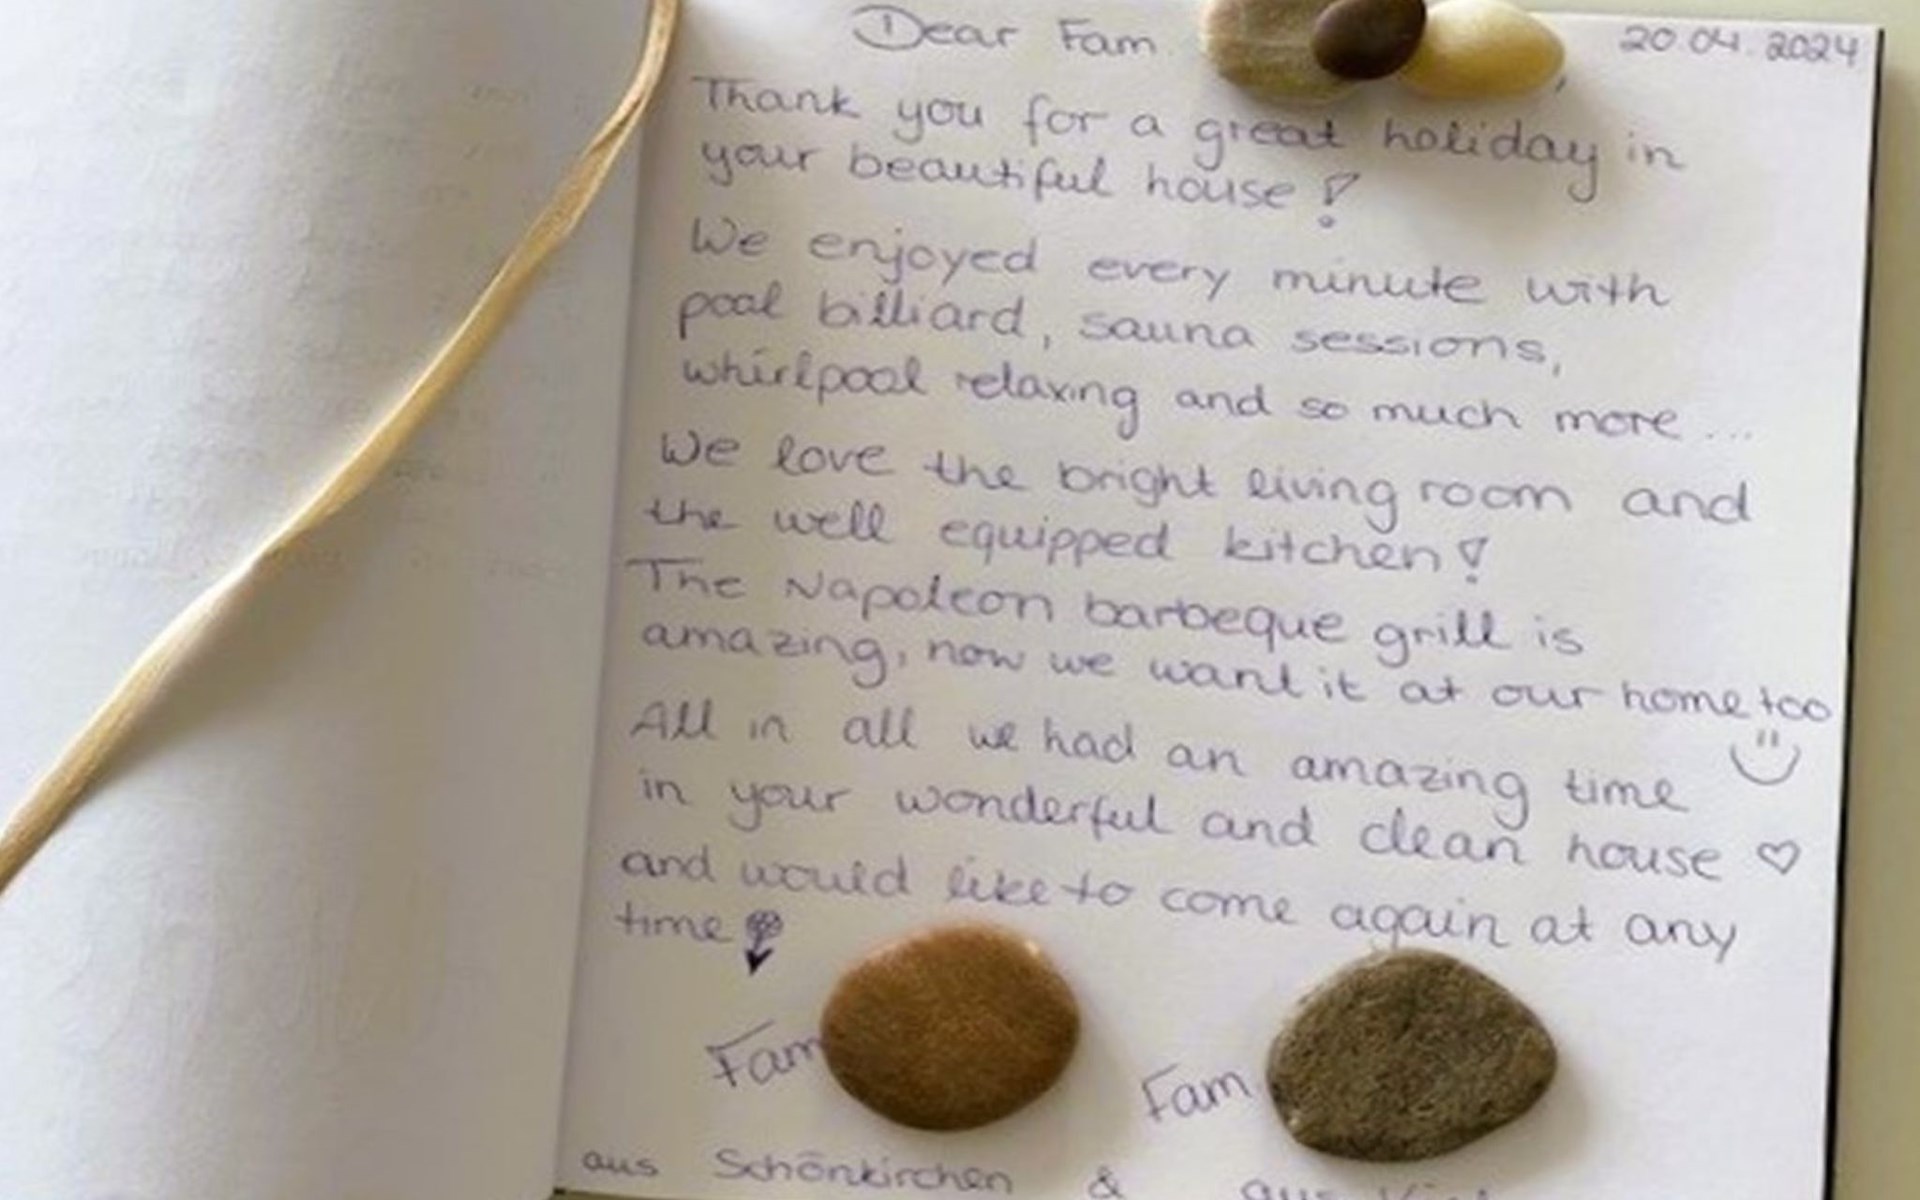 Dear Fam , 20.04.2024
Thank you for a great holiday in
your beautiful house!
We enjoyed every minute with
pool billiard, sauna sessions,
whirlpool relaxing and so much more...
We love the bright living room and
the well equipped kitchen!
The Napoleon barbeque grill is
amazing, now we want it at our home too
All in all we had an amazing time
in your wonderful and clean house ♡
and would like to come again at any
time
Fam Fam
aus Schönkirchen & aus